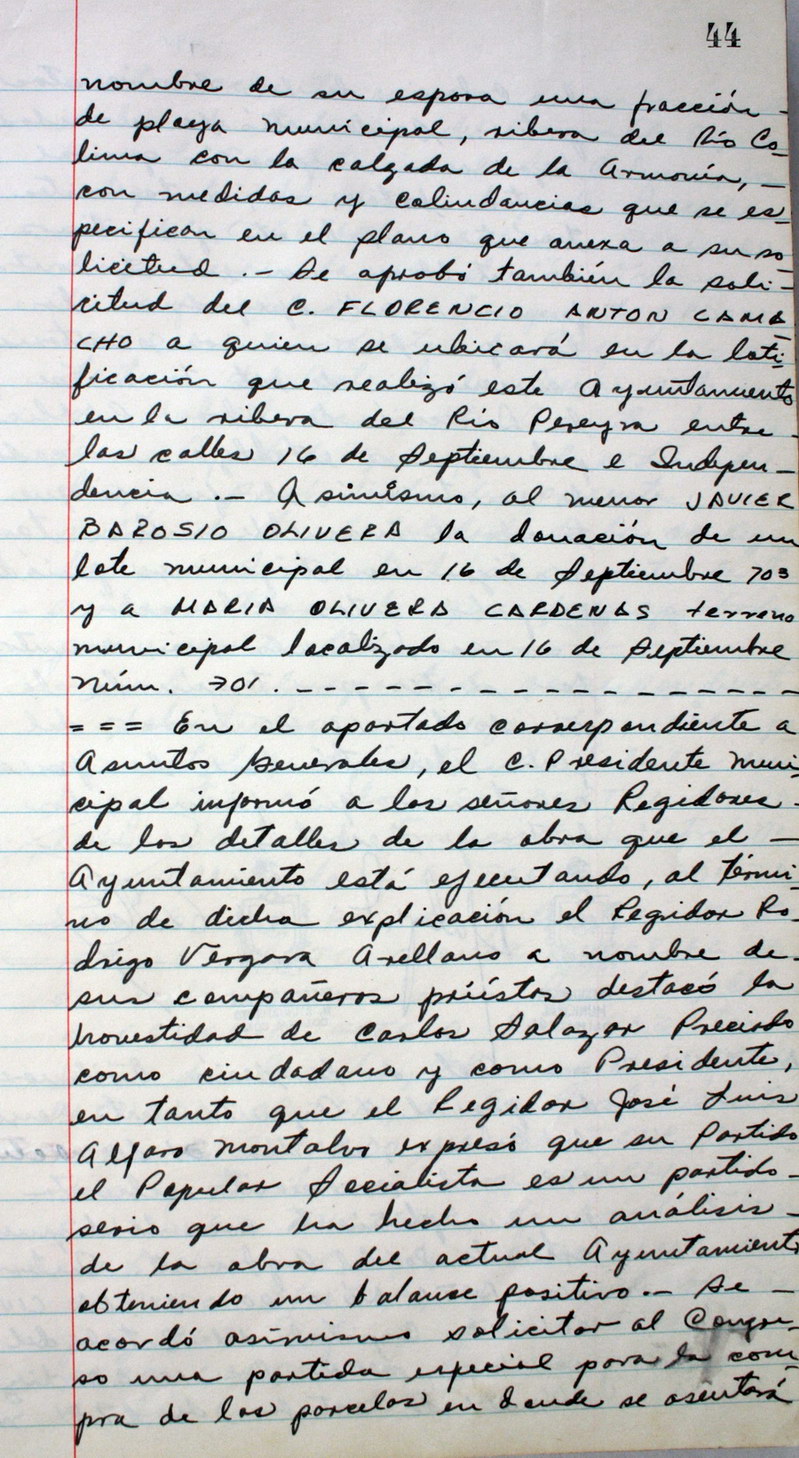 44
nombre de su esposa una fracción -
de playa municipal, ribera del Río Co-
lima con la calzada de la Armonía, -
con medidas y colindancias que se es-
pecifican en el plano que anexa a su so-
licitud. - Se aprobó también la soli-
citud del C. FLORENCIO ANTON CAMA-
CHO a quien se ubicará en la loti-
ficación que realizó este Ayuntamiento
en la ribera del Río Pereyra entre -
las calles 16 de Septiembre e Indepen-
dencia. - Asimismo, al menor JAVIER
BAROSIO OLIVERA la donación de un
lote municipal en 16 de Septiembre 703
y a MARIA OLIVERA CARDENAS terreno
municipal localizado en 16 de Septiembre
Núm. 701. - - - - - - - - - - - - - - - - - -
= = = En el apartado correspondiente a
Asuntos Generales, el C. Presidente Muni-
cipal informó a los señores Regidores -
de los detalles de la obra que el -
Ayuntamiento está ejecutando, al térmi-
no de dicha explicación el Regidor Ro-
drigo Vergara Arellano a nombre de -
sus compañeros priístas destacó la
honestidad de Carlos Salazar Preciado
como ciudadano y como Presidente,
en tanto que el Regidor José Luis
Alfaro Montalvo expresó que su Partido
el Popular Socialista es un partido -
serio que ha hecho un análisis -
de la obra del actual Ayuntamiento
obteniendo un balance positivo. - Se -
acordó asimismo solicitar al Congre-
so una partida especial para la com-
pra de las parcelas en donde se asentará